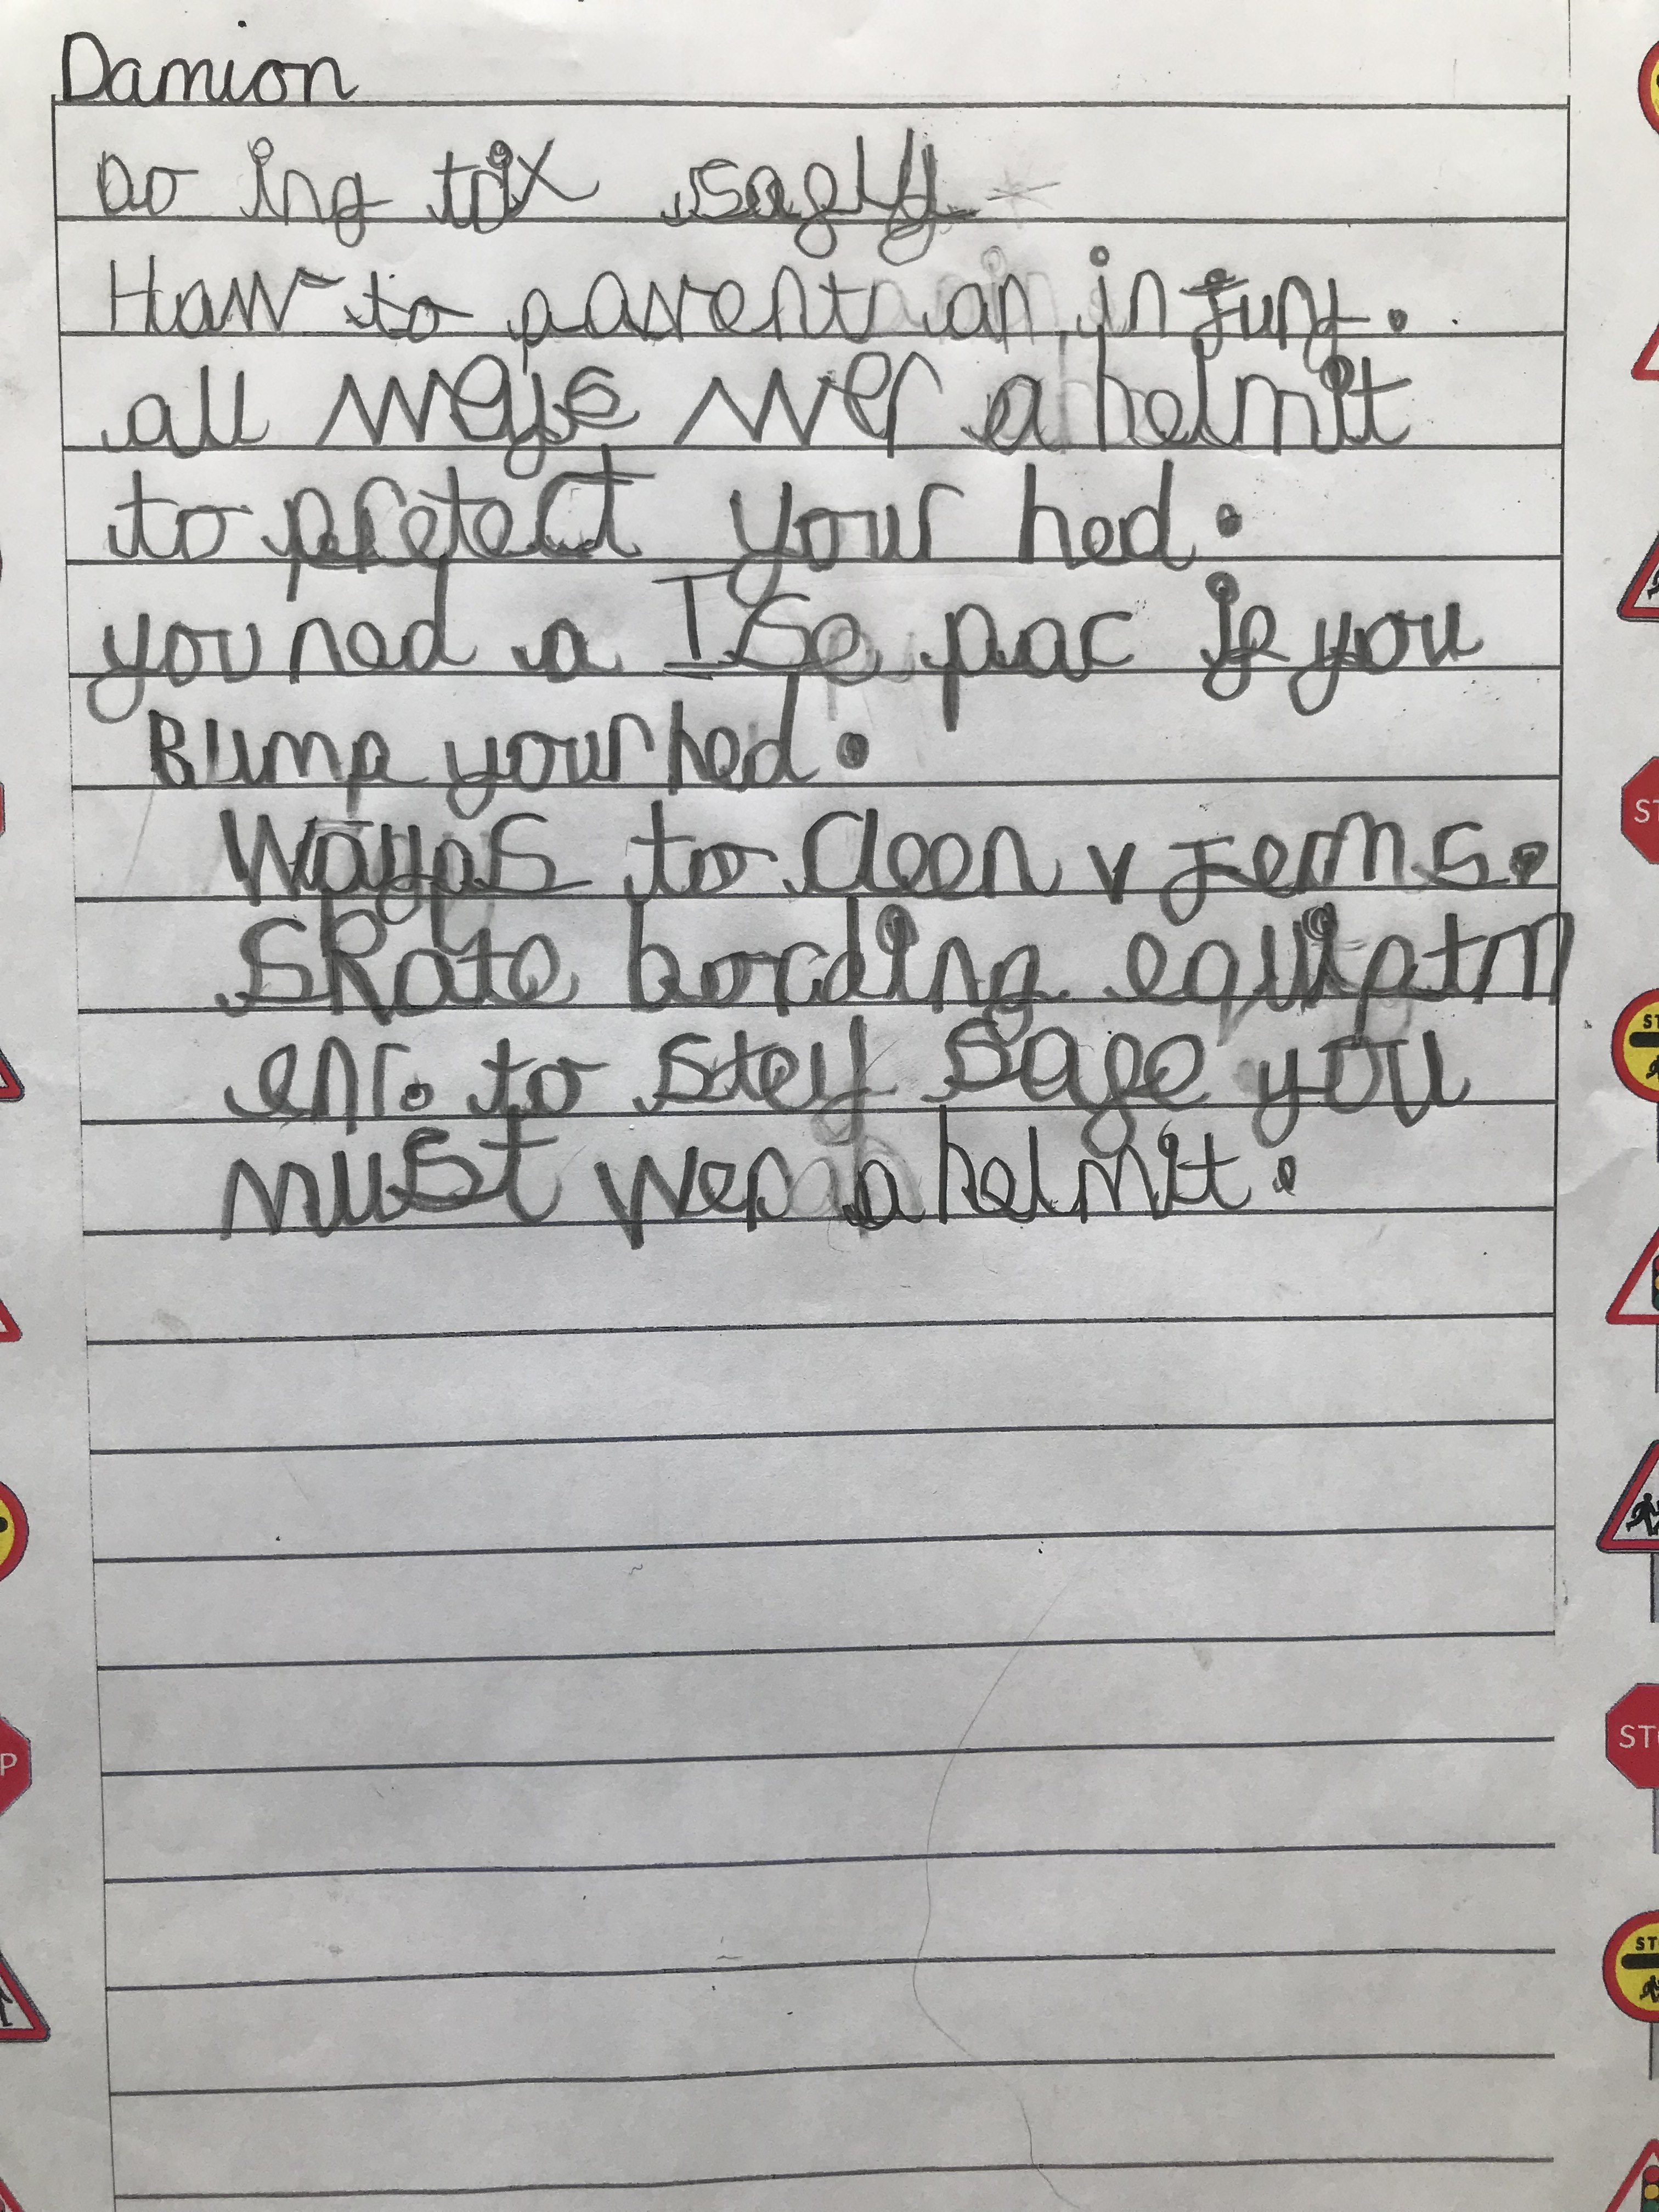 Damion
Do ing safly
Haw to pavent an in jury.
all ways wer a helmit
to pretect your hed.
you ned a ise pac if you
Bump your hed.
Wayas to cleen v jerms.
Skate bording equiptm
ent. to stey safe you
must wer a helmit.
STOP